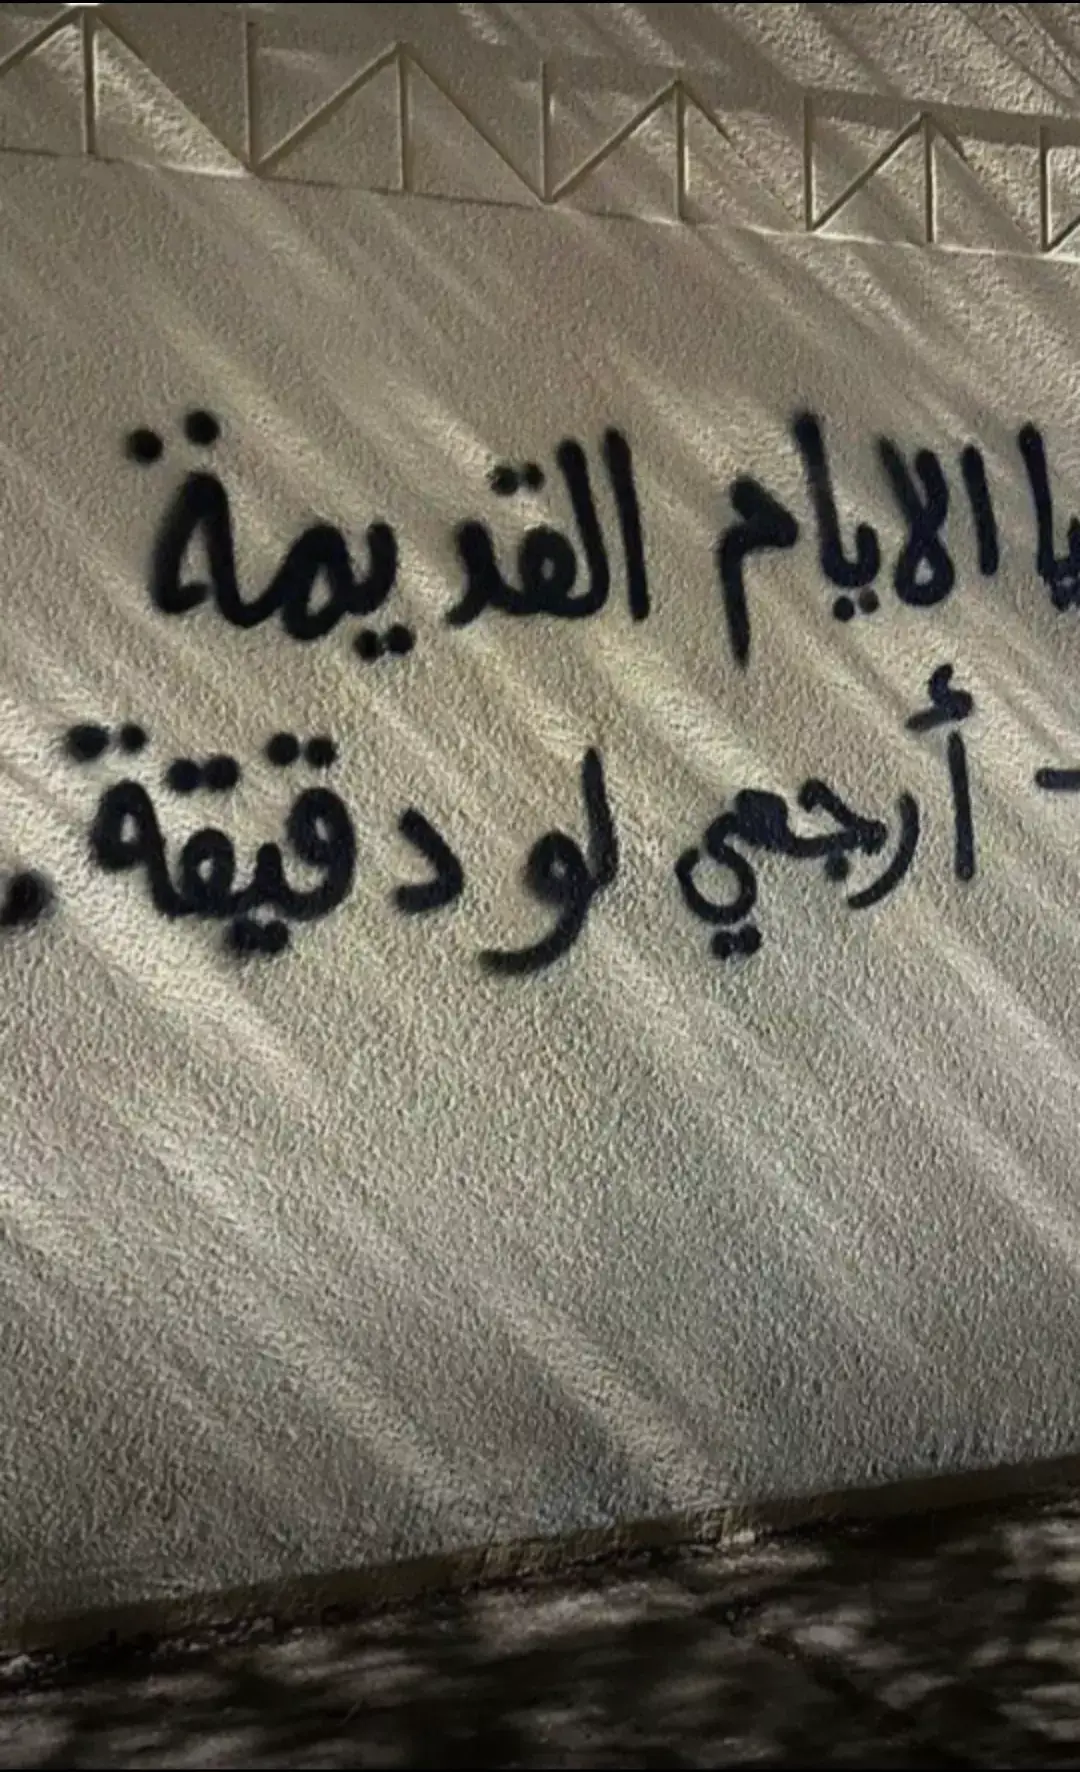 يا الايام القديمة
- أرجعي لو دقيقة .